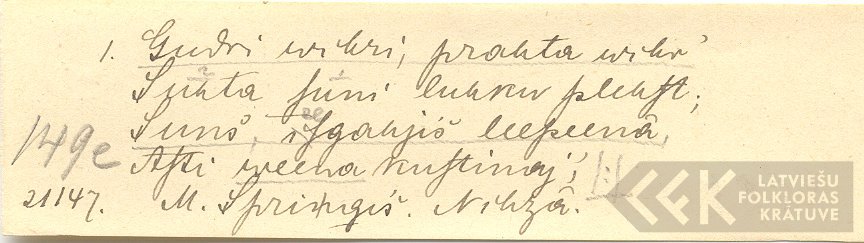 1. Gudri wihri, prahta wihr'
Suhta suni luhku plehst;
Suns, isgahjis leepeenâ,
Asti weena kustinaj'
149e
21147. M. Sprinģis. Nihzâ.
LATVIEŠU
FOLKLORAS
KRĀTUVE